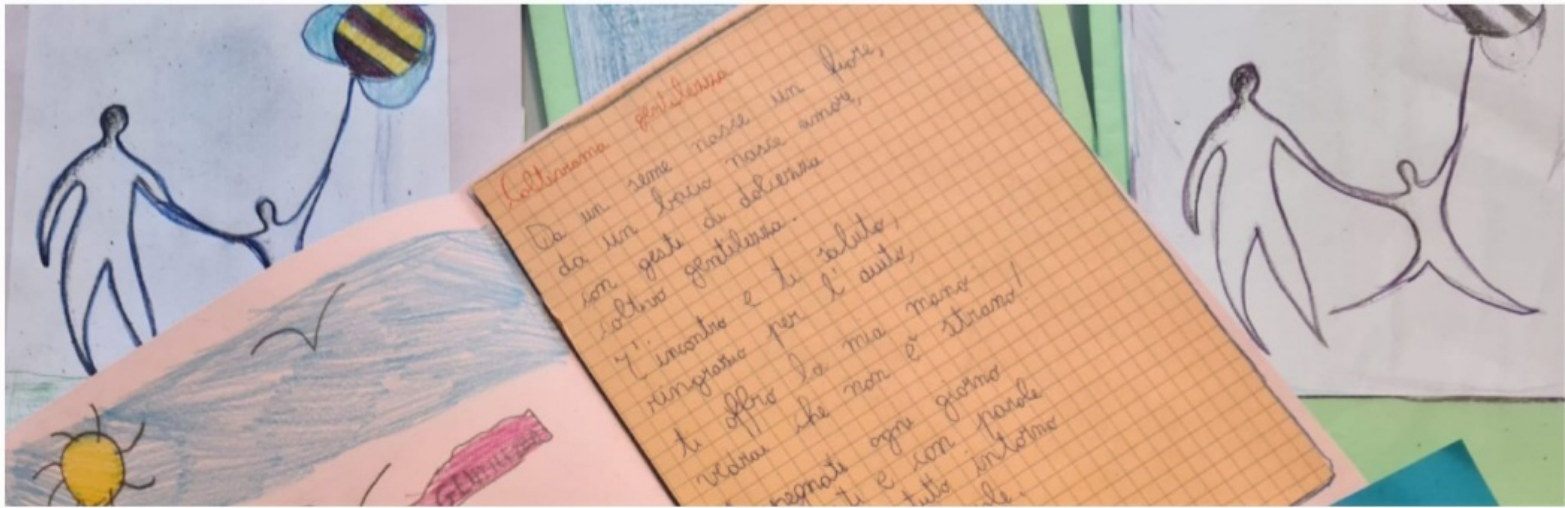 Coltiviamo gentilezza
Da un seme nasce un fiore,
da un bacio nasce amore,
con gesti di dolcezza
coltivo gentilezza.
T'incontro e ti saluto,
ringrazio per l'aiuto,
ti offro la mia mano
vedrai che non è strano!
ogni giorno
e con parole
tutto intorno